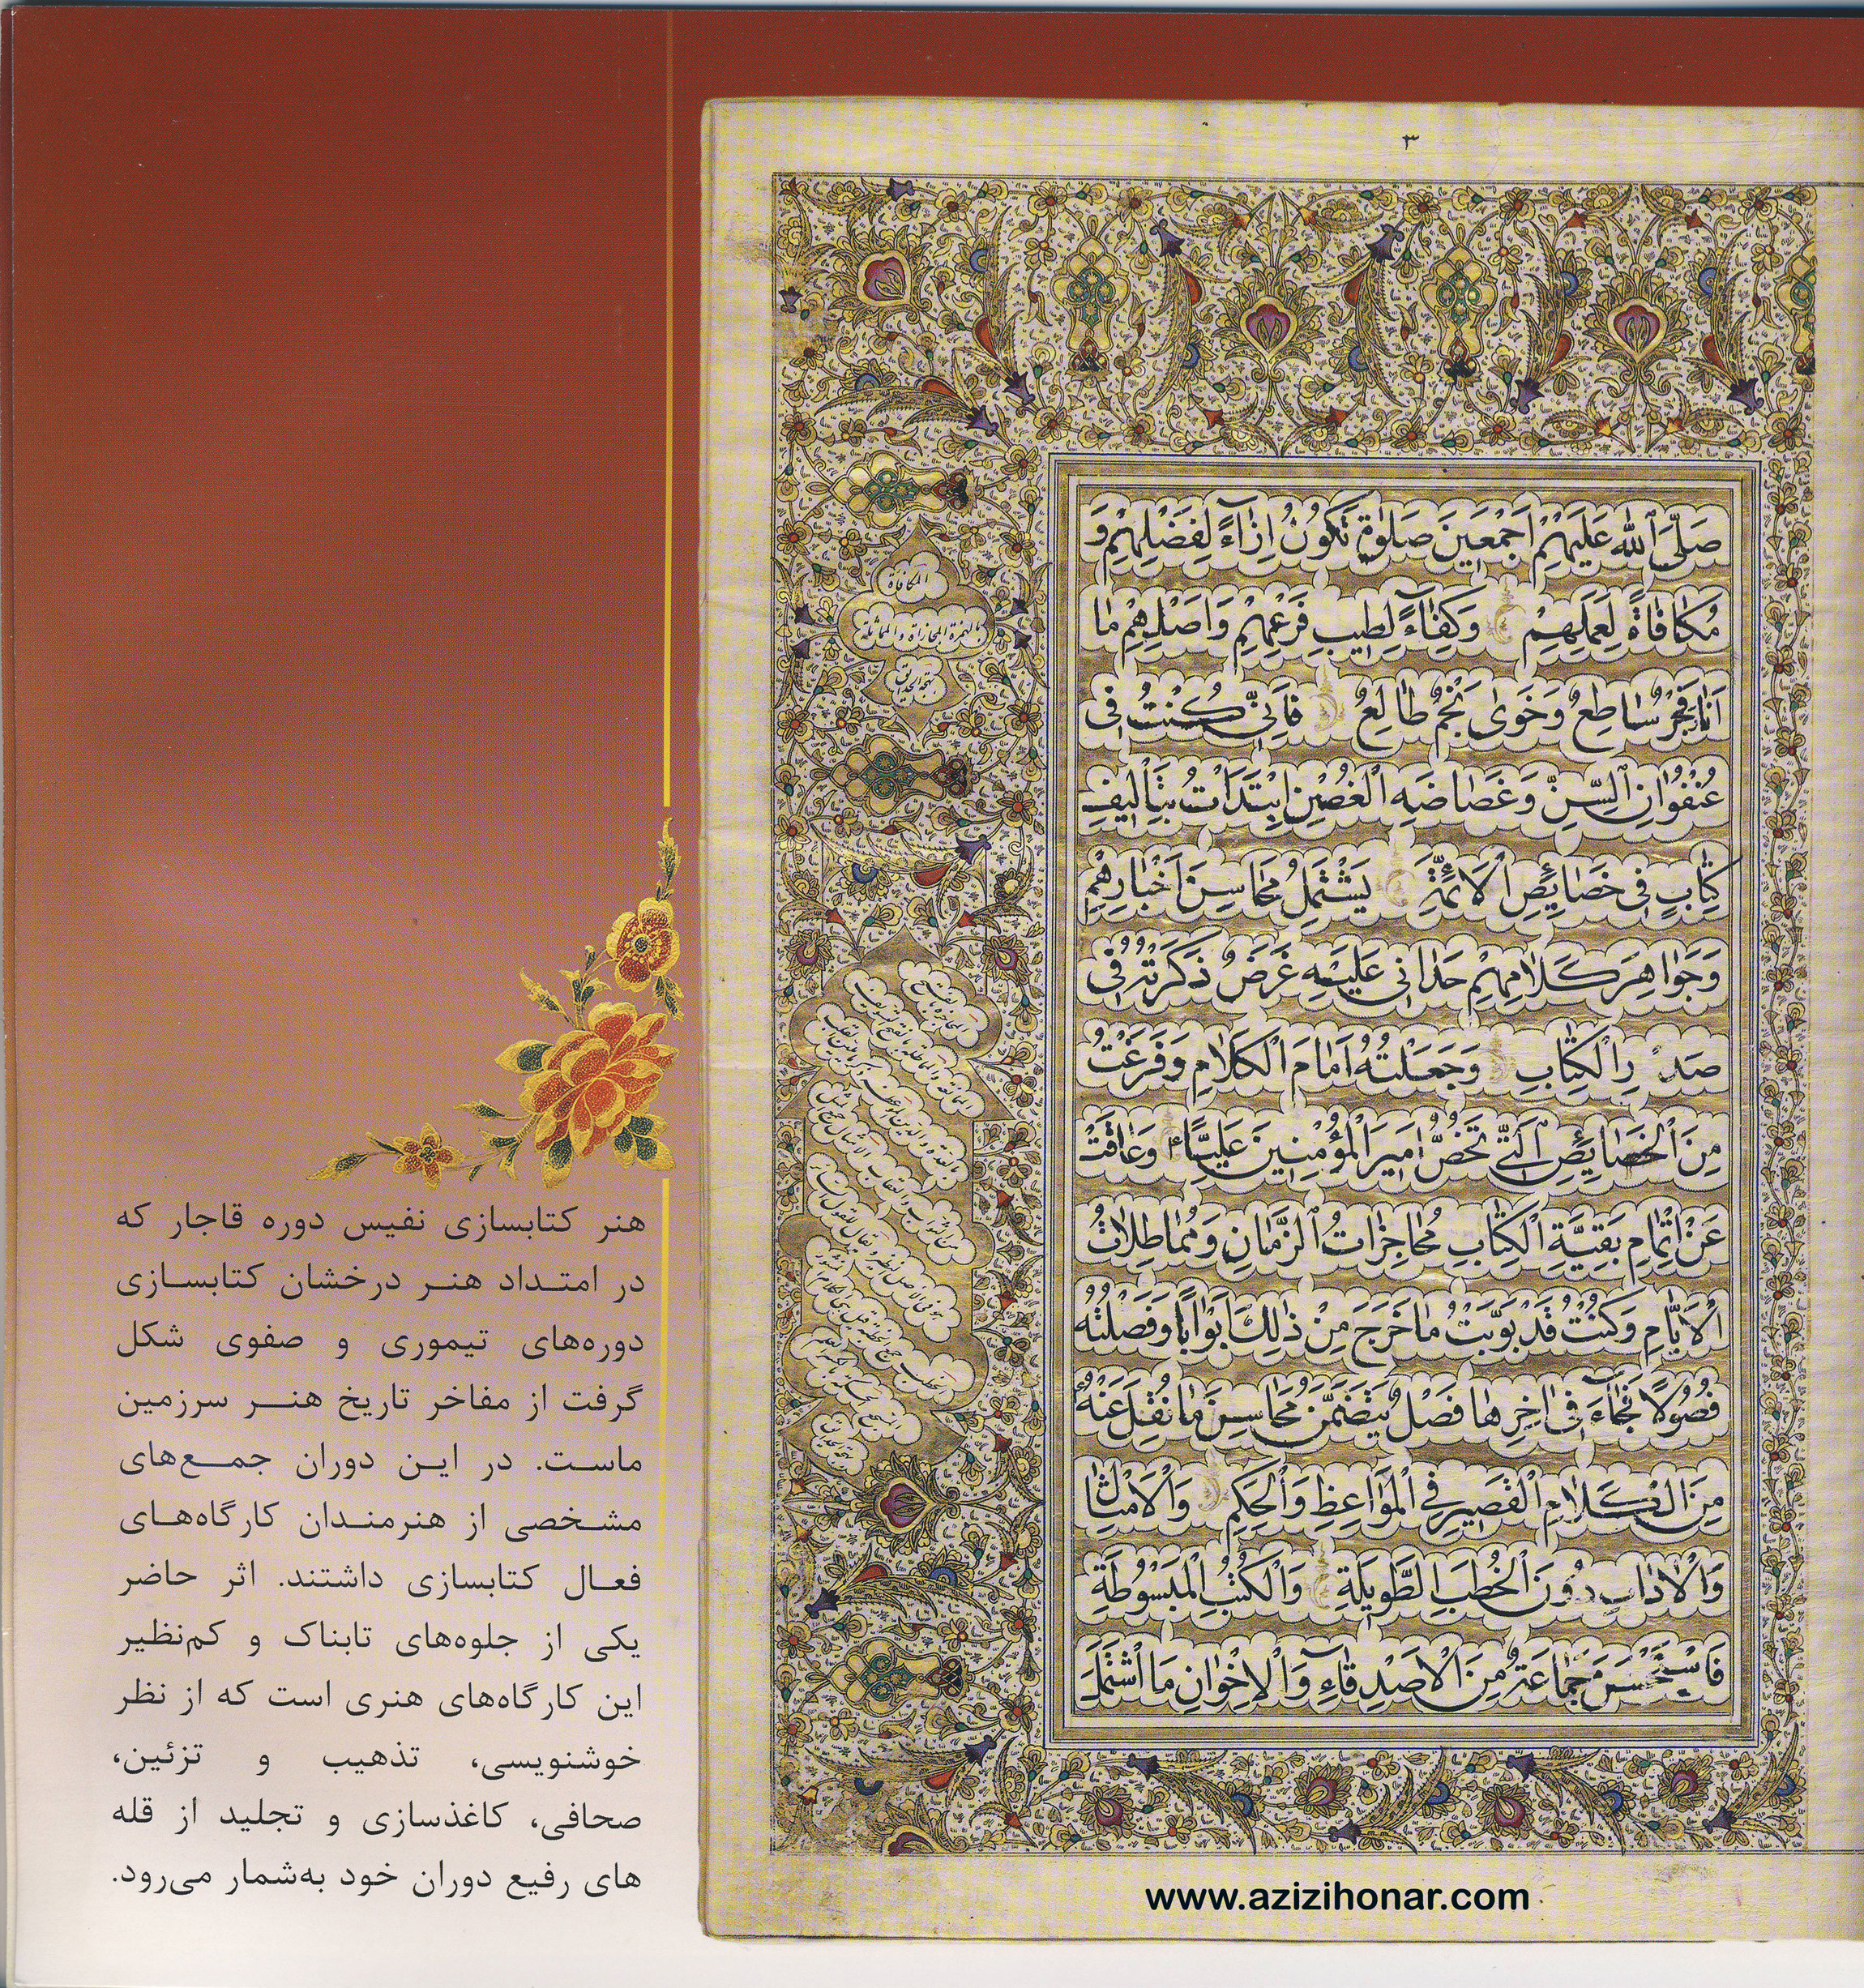 ۳
صَلَّى اللهُ عَلَيْهِمْ اَجْمَعِينَ صَلٰوةً تَكُونُ اِزٰآءً لِفَضْلِهِمْ وَ
مُكٰافٰاةً لِعَمَلِهِمْ وَكِفٰآءً لِطِيبِ فَرْعِهِمْ وَاَصْلِهِمْ مٰا
اَنٰارَ فَجْرٌ سٰاطِعٌ وَخَوىٰ نَجْمٌ طٰالِعٌ فَاِنّى كُنْتُ فى
عُنْفُوانِ السِّنِّ وَغَضٰاضَةِ الْغُصْنِ ابْتَدَاْتُ بِتَاْليفِ
كِتٰابٍ فى خَصٰايِصِ الْاَئِمَّةِ يَشْتَمِلُ مَحٰاسِنَ اَخْبٰارِهِمْ
وَجَوٰاهِرَ كَلٰامِهِمْ حَدٰانى عَلَيْهِ غَرَضٌ ذَكَرْتُهُ فى
صَدْرِ الْكِتٰابِ وَجَعَلْتُهُ اَمٰامَ الْكَلٰامِ وَفَرَغْتُ
مِنَ الْخَصٰايِصِ الَّتى تَخُصُّ اَميرَ الْمُؤْمِنينَ عَلِيًّا وَعٰاقَتْ
عَنْ اِتْمٰامِ بَقِيَّةِ الْكِتٰابِ مُحٰاجِزٰاتُ الزَّمٰانِ وَمُمٰاطِلٰاتُ
الْاَيّٰامِ وَكُنْتُ قَدْ بَوَّبْتُ مٰا خَرَجَ مِنْ ذٰلِكَ اَبْوٰابًا وَفَصَّلْتُهُ
فُصُولًا فَجٰآءَ فى اٰخِرِهٰا فَصْلٌ يَتَضَمَّنُ مَحٰاسِنَ مٰا نُقِلَ عَنْهُ
مِنَ الْكَلٰامِ الْقَصيرِ فِى الْمَوٰاعِظِ وَالْحِكَمِ وَالْاَمْثٰالِ
وَالْاٰدٰابِ دُونَ الْخُطَبِ الطَّويلَةِ وَالْكُتُبِ الْمَبْسُوطَةِ
فَاسْتَحْسَنَ جَمٰاعَةٌ مِنَ الْاَصْدِقٰآءِ وَالْاِخْوٰانِ مَا اشْتَمَلَ
المكافاة
بالهمزة المجازاة والمماثلة
هنر کتابسازی نفیس دوره قاجار که
در امتداد هنر درخشان کتابسازی
دوره‌های تیموری و صفوی شکل
گرفت از مفاخر تاریخ هنر سرزمین
ماست. در این دوران جمع‌های
مشخصی از هنرمندان کارگاه‌های
فعال کتابسازی داشتند. اثر حاضر
یکی از جلوه‌های تابناک و کم‌نظیر
این کارگاه‌های هنری است که از نظر
خوشنویسی، تذهیب و تزئین،
صحافی، کاغذسازی و تجلید از قله
های رفیع دوران خود به‌شمار می‌رود.
www.azizihonar.com